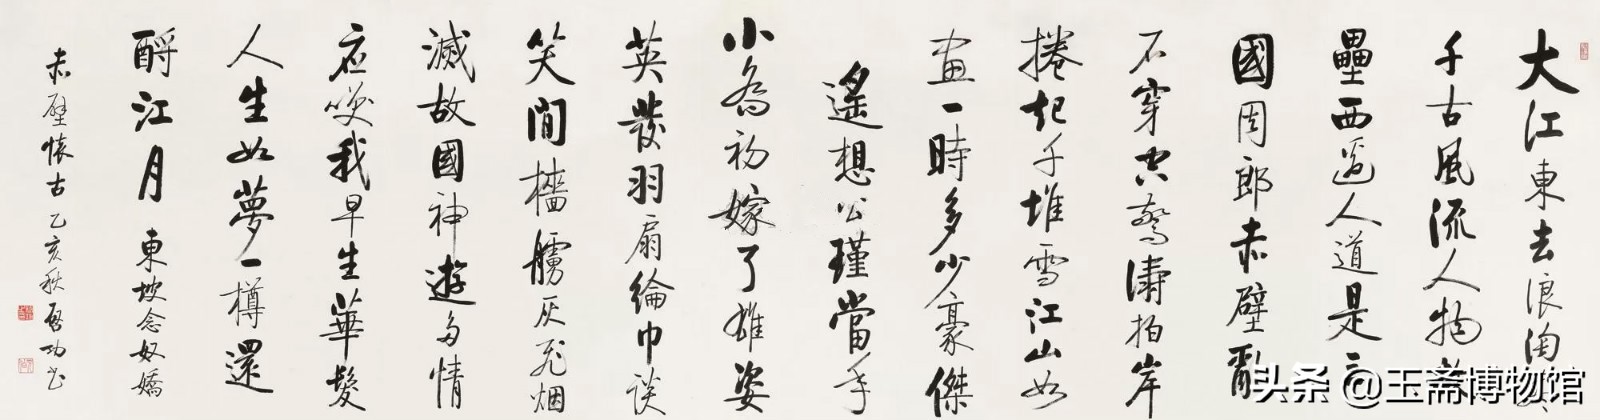 大江東去浪淘
千古風流人物
壘西邊人道是三
國周郎赤壁亂
石穿空驚濤拍岸
捲起千堆雪江山如
畫一時多少豪傑
遙想公瑾當年
小喬初嫁了雄姿
英發羽扇綸巾談
笑間檣艣灰飛烟
滅故國神遊多情
應笑我早生華髮
人生如夢一樽還
酹江月 東坡念奴嬌
赤壁懷古 乙亥秋 啓功书
头条 @玉斋博物馆